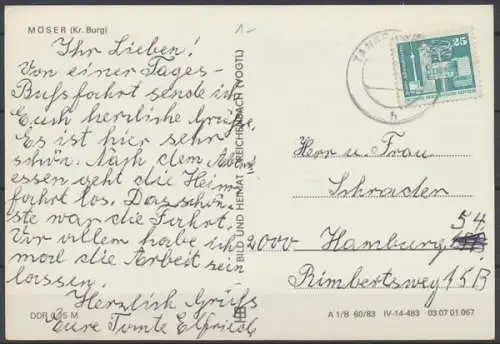 MÖSER (Kr. Burg)
Ihr Lieben!
Von einer Tages-
Busfahrt sende ich
Euch herzliche Grüße.
Es ist hier sehr
schön. Nach dem Abend
essen geht die Heim
fahrt los. Das schön-
ste war die Fahrt.
Vor allem habe ich
mal die Arbeit sein
lassen.
Herzlich Grüß
Eure Tante Elfriede
DDR 0,25 M
BILD UND HEIMAT REICHENBACH (VOGTL)
25
h
Herr u. Frau
Schrader
2000 Hamburg 54
Rimbertsweg 15B
A 1/B 60/83 IV-14-483 03 07 01 067